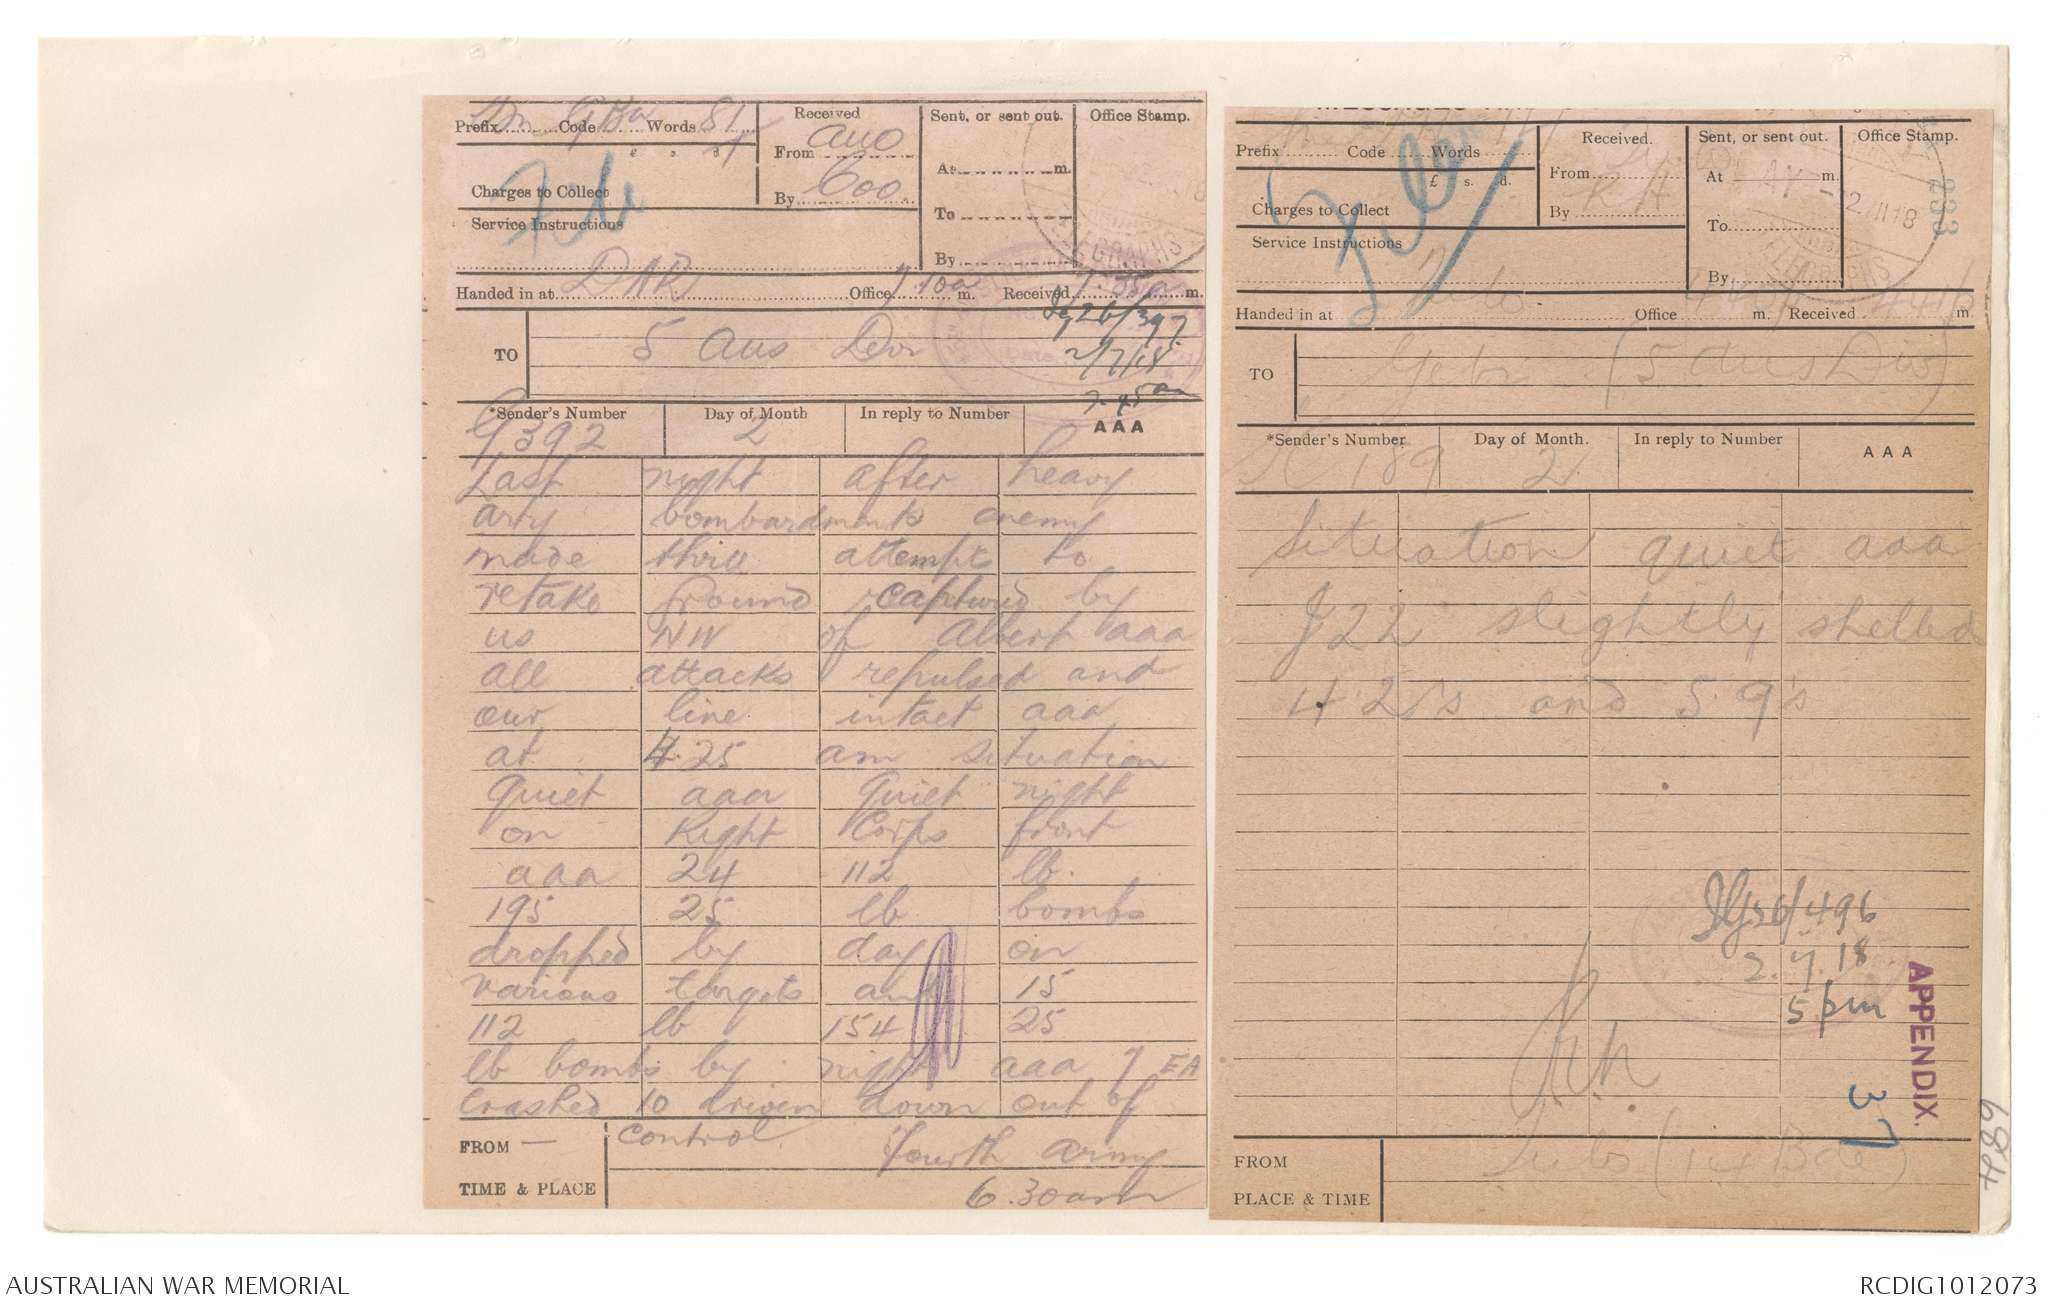 Prefix Sm Code GBa Words 81
Received
From AUO
By Coo.
Sent, or sent out.
At m.
To
By
Office Stamp.
Charges to Collect
Service Instructions
TELEGRAPHS
Handed in at DAR Office 7.10a m. Received 7.35a m.
Ig 26/397.
2/7/18
7.45am
TO 5 Aus Div
*Sender's Number Day of Month In reply to Number AAA
G392 2
Last night after heavy
arty bombardments enemy
made three attempts to
retake ground captured by
us NW of Albert aaa
all attacks repulsed and
our line intact aaa
at 4.25 am situation
quiet aaa Quiet night
on Right Corps front
aaa 24 112 lb.
195 25 lb bombs
dropped by day on
various targets and 15
112 lb 154 25
lb bombs by night aaa 7 EA
crashed 10 driven down out of
FROM — control Fourth Army
TIME & PLACE 6.30am
Prefix Code Words
£ s. d.
Received.
From
By RH
Sent, or sent out.
At m.
To
By
Office Stamp.
2 VII 18
233
Charges to Collect
Service Instructions
Handed in at Office m. Received m.
TO (5 Aus Div)
*Sender's Number Day of Month. In reply to Number AAA
189 2.
Situation quiet aaa
J22 slightly shelled
4.2's and 5.9's
Ig 26/496
2.7.18
5 pm
APPENDIX.
37
FROM (14 Bde)
PLACE & TIME
489
AUSTRALIAN WAR MEMORIAL
RCDIG1012073